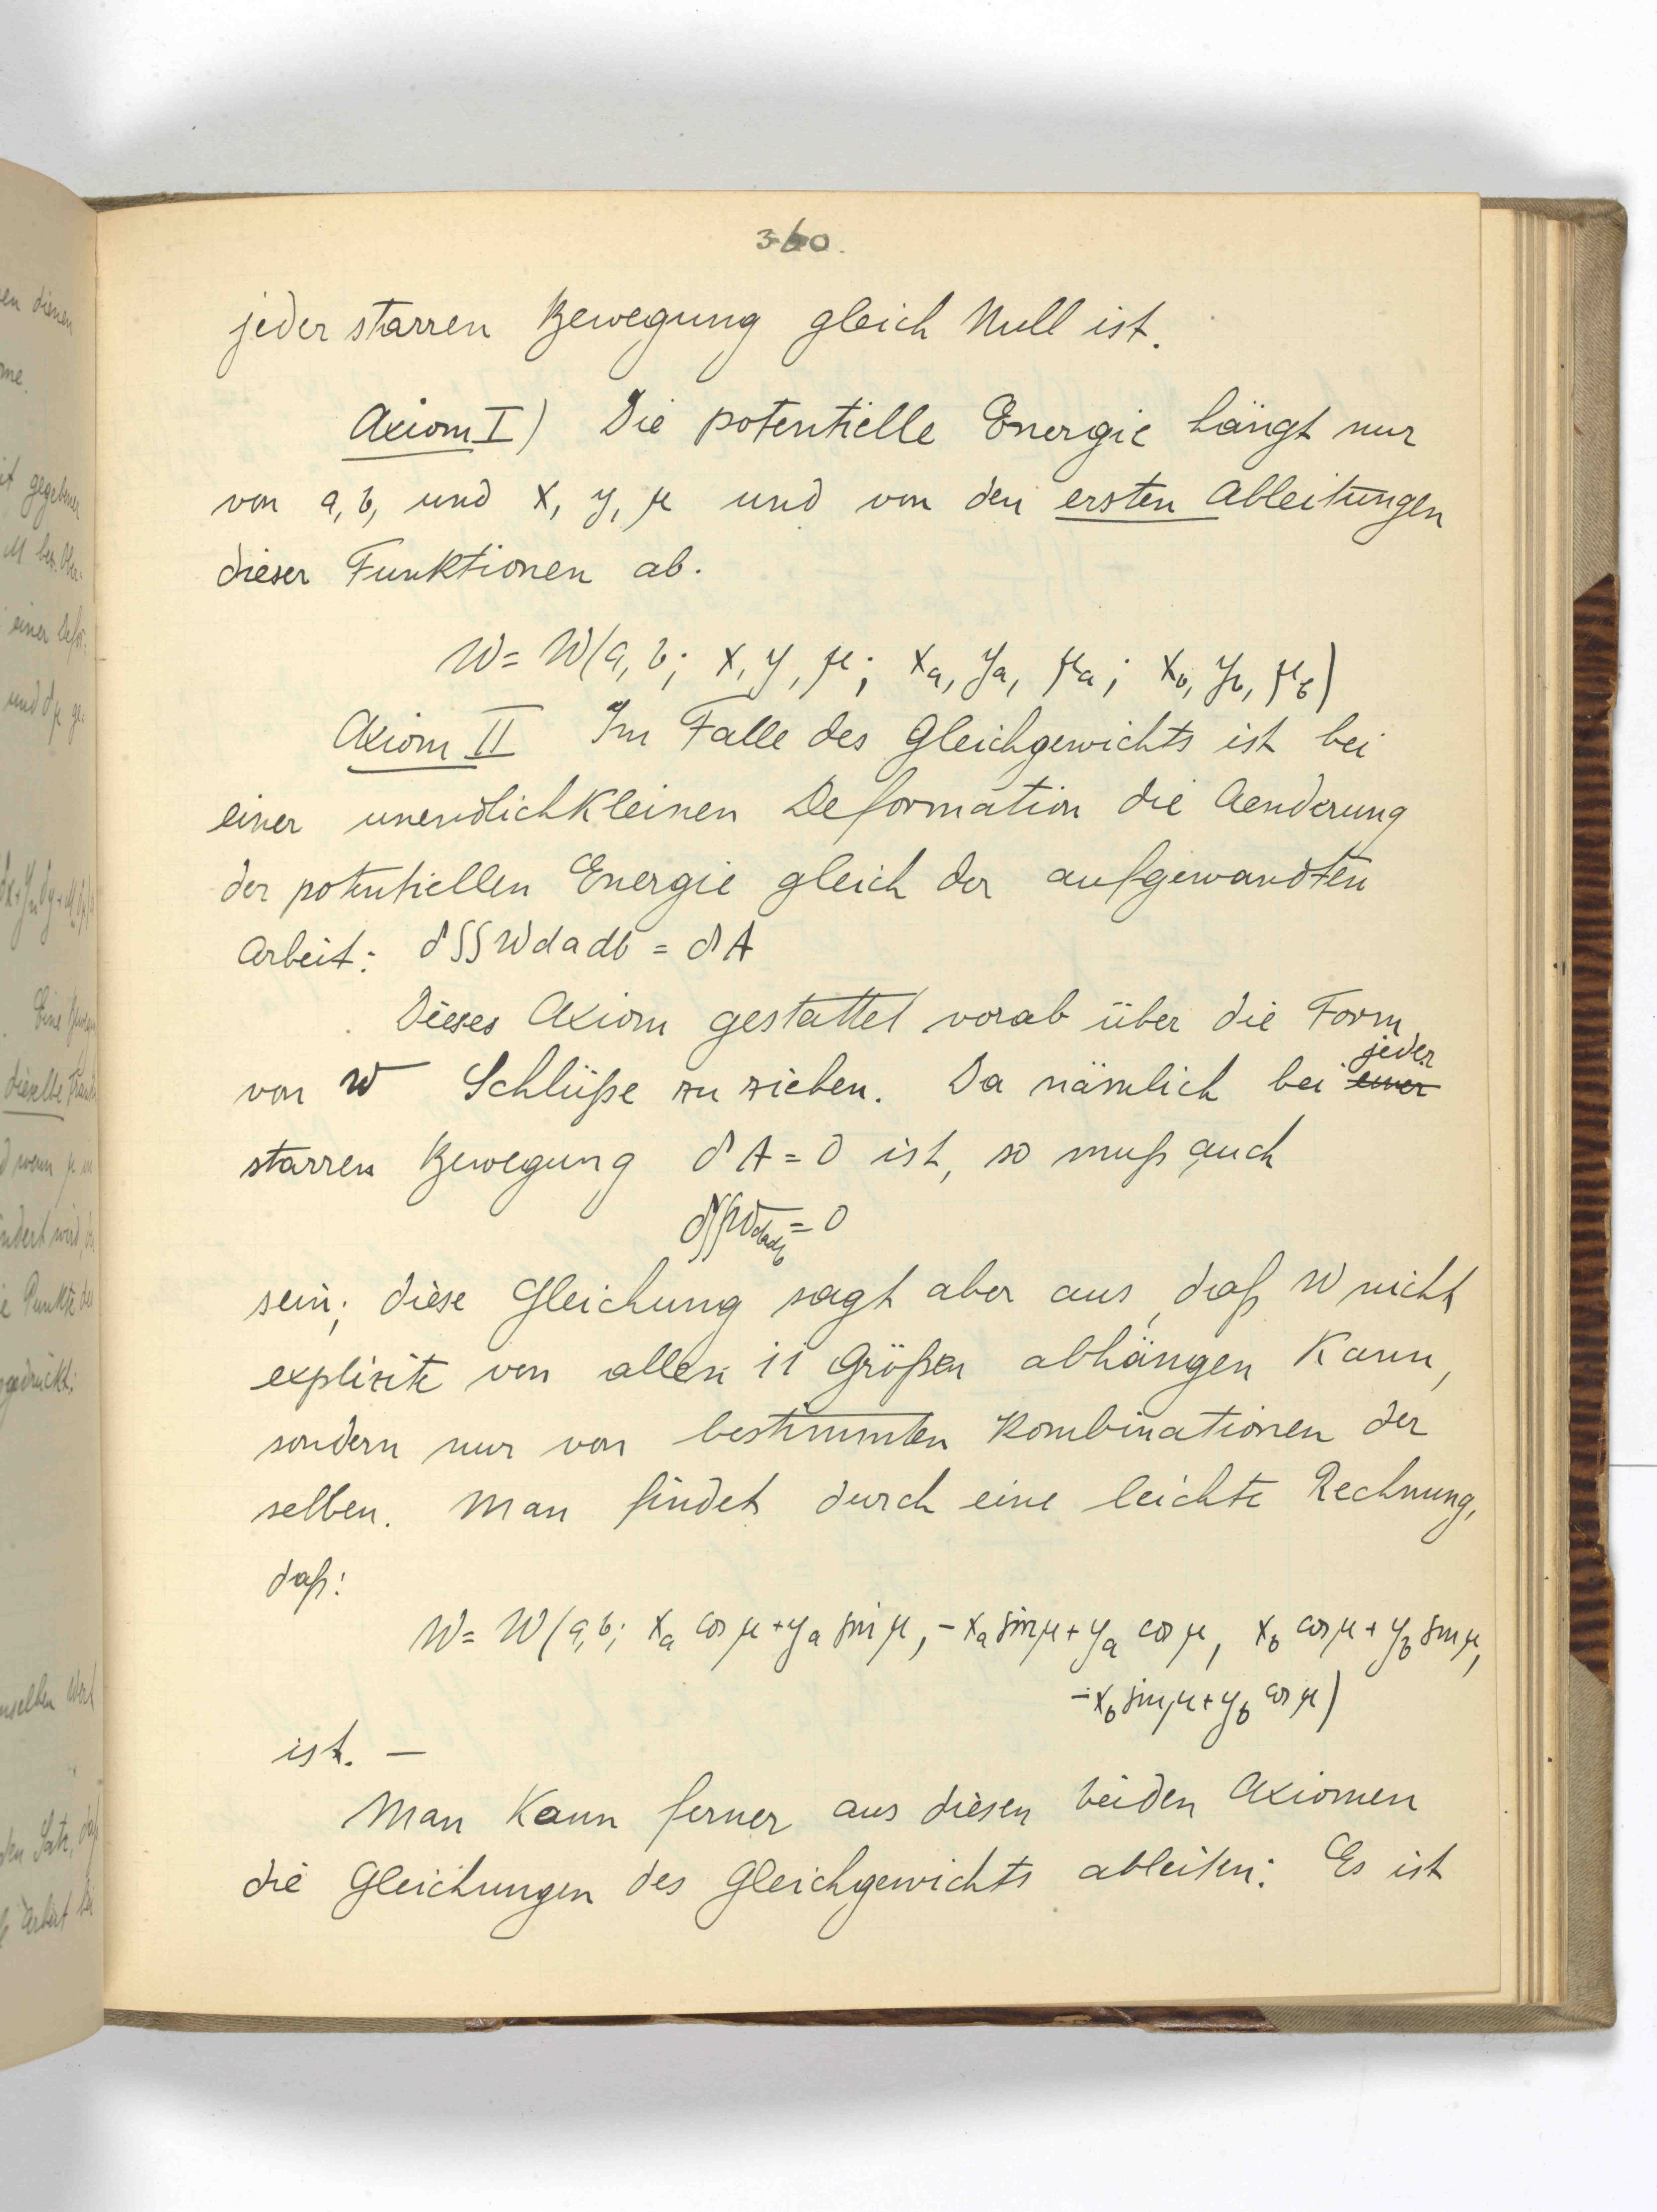 360.
jeder starren Bewegung gleich Null ist.
Axiom I) Die potentielle Energie hängt nur
von a, b, und x, y, μ und von den ersten Ableitungen
dieser Funktionen ab.
W = W(a, b; x, y, μ; x_a, y_a, μ_a; x_b, y_b, μ_b)
Axiom II Im Falle des Gleichgewichts ist bei
einer unendlichkleinen Deformation die Aenderung
der potentiellen Energie gleich der aufgewandten
Arbeit: δ∫∫W da db = δA
Dieses Axiom gestattet vorab über die Form
von W Schlüße zu ziehen. Da nämlich bei einer jeder
starren Bewegung δA = 0 ist, so muß auch
δ∫∫W da db = 0
sein; diese Gleichung sagt aber aus, daß W nicht
explizite von allen 11 Größen abhängen kann,
sondern nur von bestimmten Kombinationen der
selben. Man findet durch eine leichte Rechnung,
daß:
W = W(a, b; x_a cos μ + y_a sin μ, -x_a sin μ + y_a cos μ, x_b cos μ + y_b sin μ,
-x_b sin μ + y_b cos μ)
ist. —
Man kann ferner aus diesen beiden Axiomen
die Gleichungen des Gleichgewichts ableiten: Es ist